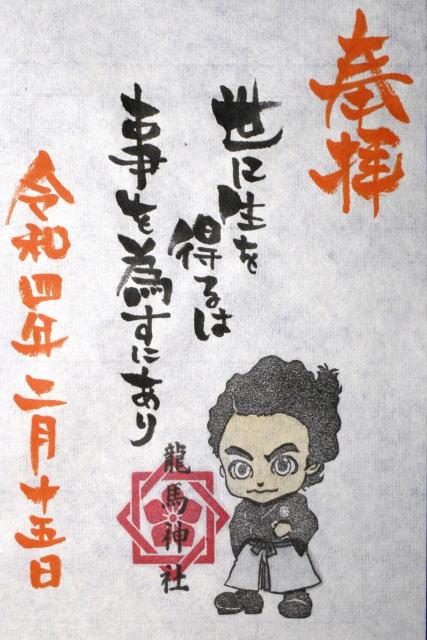 奉拝
世に生を
得るは
事を為すにあり
龍馬神社
令和四年二月十五日